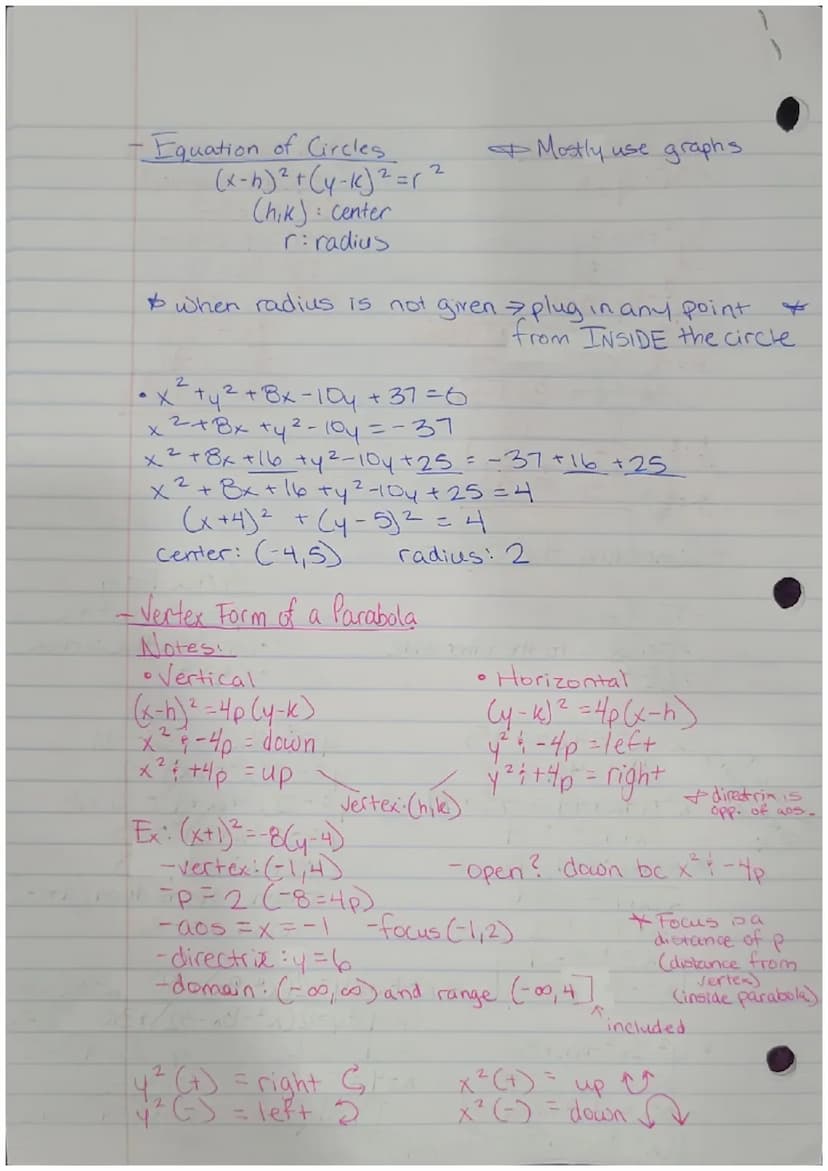 - Equation of Circles
* Mostly use graphs
(x-h)²+(y-k)²=r²
(h,k): center
r: radius
* when radius is not given → plug in any point *
from INSIDE the circle
• x²+y²+8x-10y+37=0
x²+8x+y²-10y=-37
x²+8x+16+y²-10y+25=-37+16+25
x²+8x+16+y²-10y+25=4
(x+4)²+(y-5)²=4
center: (-4,5) radius: 2
- Vertex Form of a Parabola
Notes:
• Vertical
• Horizontal
(x-h)²=4p(y-k)
(y-k)²=4p(x-h)
x² & -4p = down
y² & -4p = left
x² & +4p = up
y² & +4p = right
vertex: (h,k)
* directrix is
opp. of aos.
Ex: (x+1)²=-8(y-4)
- vertex: (-1,4)
- open? down bc x² & -4p
- p = 2 (-8=4p)
- aos = x = -1 - focus (-1,2)
- directrix: y=6
- domain: (-∞,∞) and range (-∞,4]
included
* Focus is a
distance of p
(distance from
vertex)
(inside parabola)
y² (+) = right
x² (+) = up
y² (-) = left
x² (-) = down